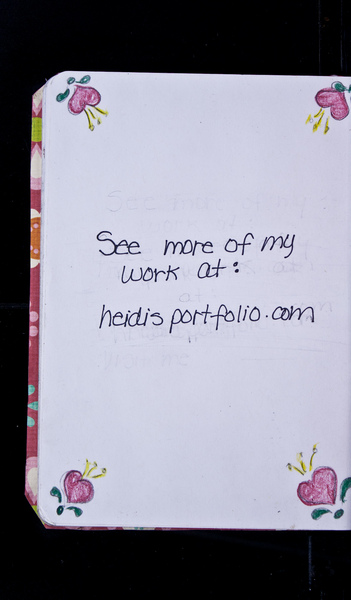 See more of my
work at:
heidisportfolio.com